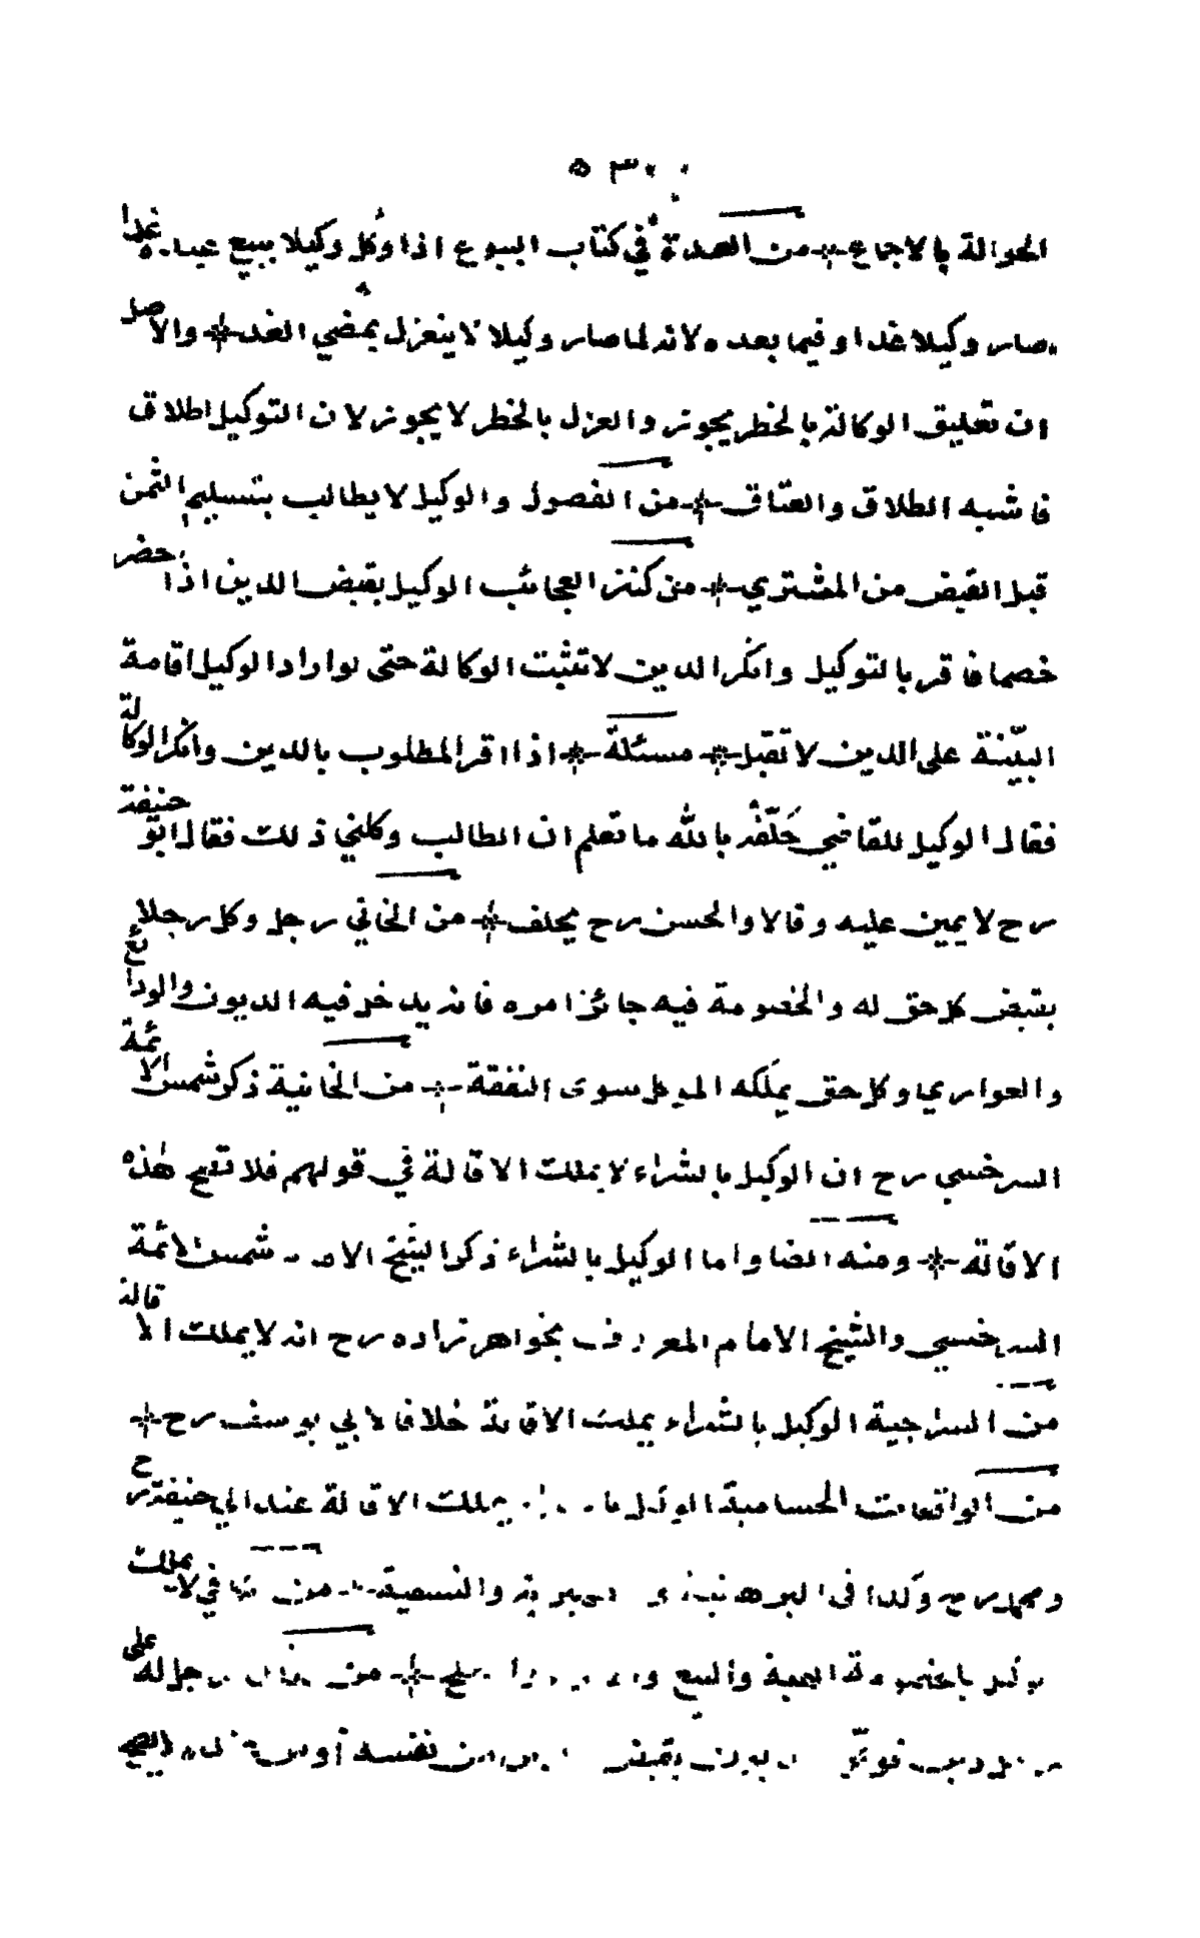 ٥٣٠
الحوالة بالاجماع من العمدة في كتاب البيوع اذا وكل وكيلا ببيع عبده غدا
صار وكيلا غدا وفيما بعده لانه لما صار وكيلا لا ينعزل بمضي الغد والاصل
ان تعليق الوكالة بالخطر يجوز والعزل بالخطر لا يجوز لان التوكيل اطلاق
فاشبه الطلاق والعتاق من الفصول والوكيل لا يطالب بتسليم الثمن
قبل القبض من المشتري من كنز العجائب الوكيل بقبض الدين اذا حضر
خصما فاقر بالتوكيل وانكر الدين لا تثبت الوكالة حتى لو اراد الوكيل اقامة
البيّنة على الدين لا تقبل مسئلة اذا اقر المطلوب بالدين وانكر الوكالة
فقال الوكيل للقاضي حَلِّفْه بالله ما تعلم ان الطالب وكلني ذلك فقال ابو حنيفة
رح لا يمين عليه وقالا والحسن رح يحلف من الخاني رجل وكل رجلا
بقبض كل حق له والخصومة فيه جائز امره فانه يدخل فيه الديون والودائع
والعواري وكل حق يملكه الموكل سوى النفقة من الخانية ذكر شمس الائمة
السرخسي رح ان الوكيل بالشراء لا يملك الاقالة في قولهم فلا تصح هذه
الاقالة ومنه ايضا واما الوكيل بالشراء ذكر الشيخ الامام شمس الائمة
السرخسي والشيخ الامام المعروف بخواهرزاده رح انه لا يملك الاقالة
من السراجية الوكيل بالشراء يملك الاقالة خلافا لابي يوسف رح
من الواقعات الحسامية الوكيل يملك الاقالة عند ابي حنيفة رح
ومحمد رح وكذا في من في لا يملك
بالخصومة الهبة والبيع من رجل له على
يقبض من نفسه او